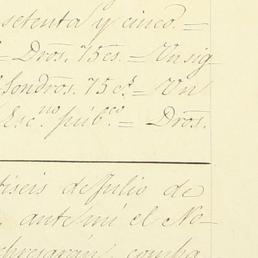 setenta y cinco. =
= Dros. 75 cs. = Un sig
Londros. 75 cs. = Un
Esc.no púb.co = Dros.
tiseis de Julio de
ante mi el No-